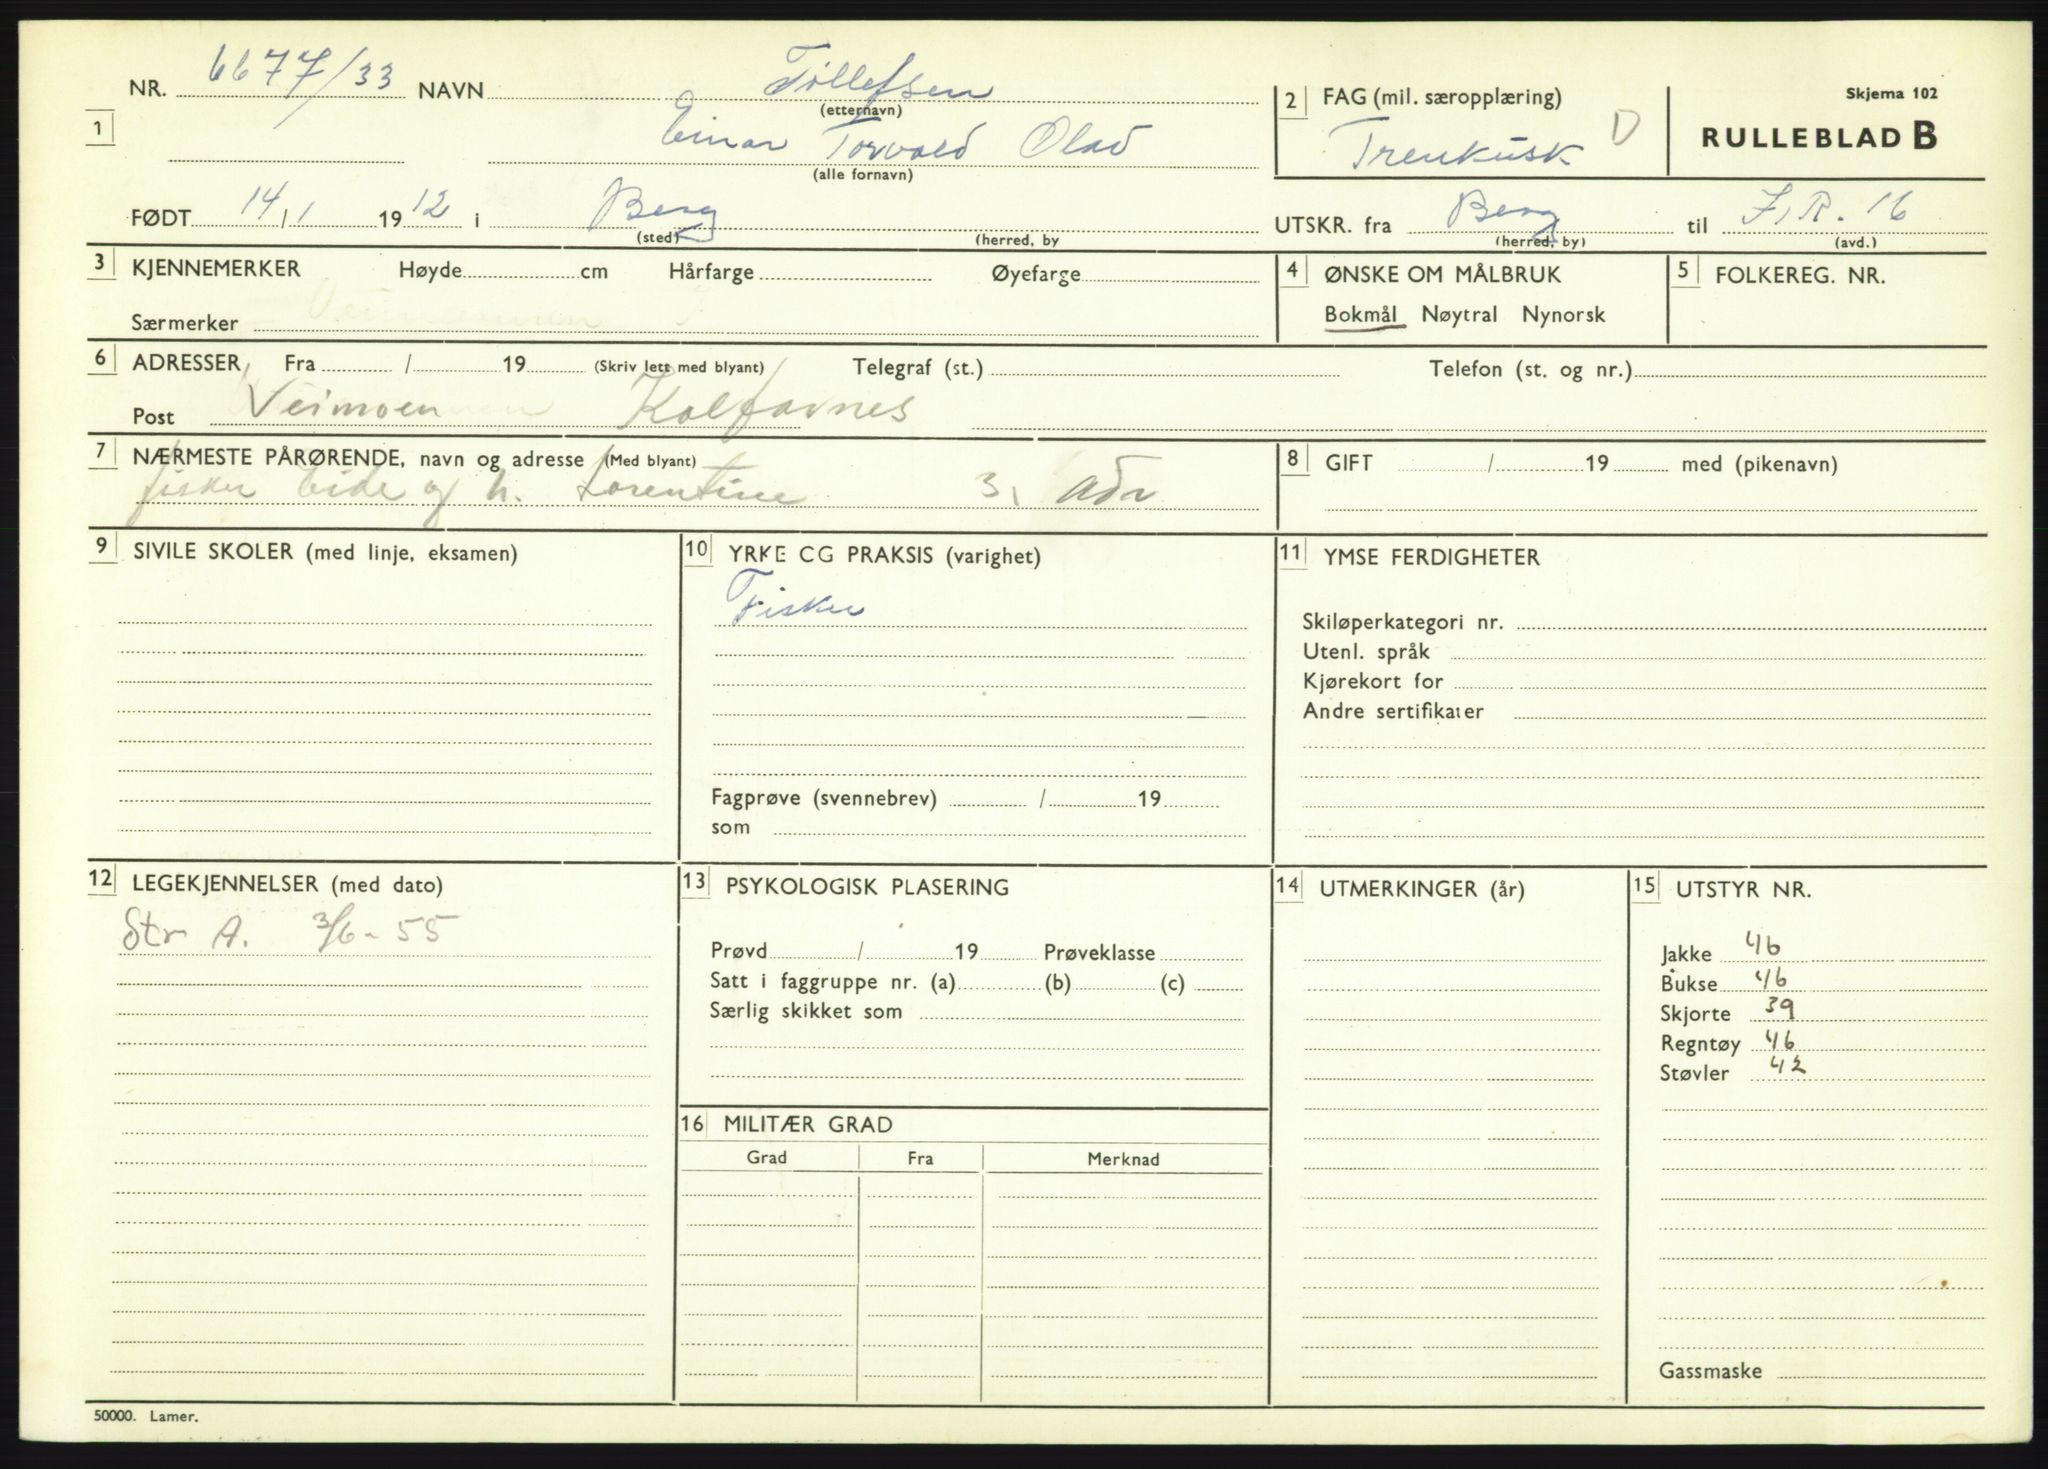 NR. 6677/33 NAVN Tøllefsen
(etternavn)
1 Einar Torvald Olav
(alle fornavn)
2 FAG (mil. særopplæring)
Trenkusk D
Skjema 102
RULLEBLAD B
FØDT 14/1 1912 i Berg
(sted) (herred, by
UTSKR. fra Berg til I.R. 16
(herred, by) (avd.)
3 KJENNEMERKER Høyde cm Hårfarge Øyefarge
Særmerker
4 ØNSKE OM MÅLBRUK
Bokmål Nøytral Nynorsk
5 FOLKEREG. NR.
6 ADRESSER, Fra / 19 (Skriv lett med blyant) Telegraf (st.) Telefon (st. og nr.)
Post Veimoen Kalfarnes
7 NÆRMESTE PÅRØRENDE, navn og adresse (Med blyant)
fisker Eide og h. Lorentine s. adr
8 GIFT / 19 med (pikenavn)
9 SIVILE SKOLER (med linje, eksamen)
10 YRKE CG PRAKSIS (varighet)
Fisker
Fagprøve (svennebrev) / 19
som
11 YMSE FERDIGHETER
Skiløperkategori nr.
Utenl. språk
Kjørekort for
Andre sertifikater
12 LEGEKJENNELSER (med dato)
Str A. 3/6-55
13 PSYKOLOGISK PLASERING
Prøvd / 19 Prøveklasse
Satt i faggruppe nr. (a) (b) (c)
Særlig skikket som
14 UTMERKINGER (år)
15 UTSTYR NR.
Jakke 46
Bukse 46
Skjorte 39
Regntøy 46
Støvler 42
Gassmaske
16 MILITÆR GRAD
Grad Fra Merknad
50000. Lamer.